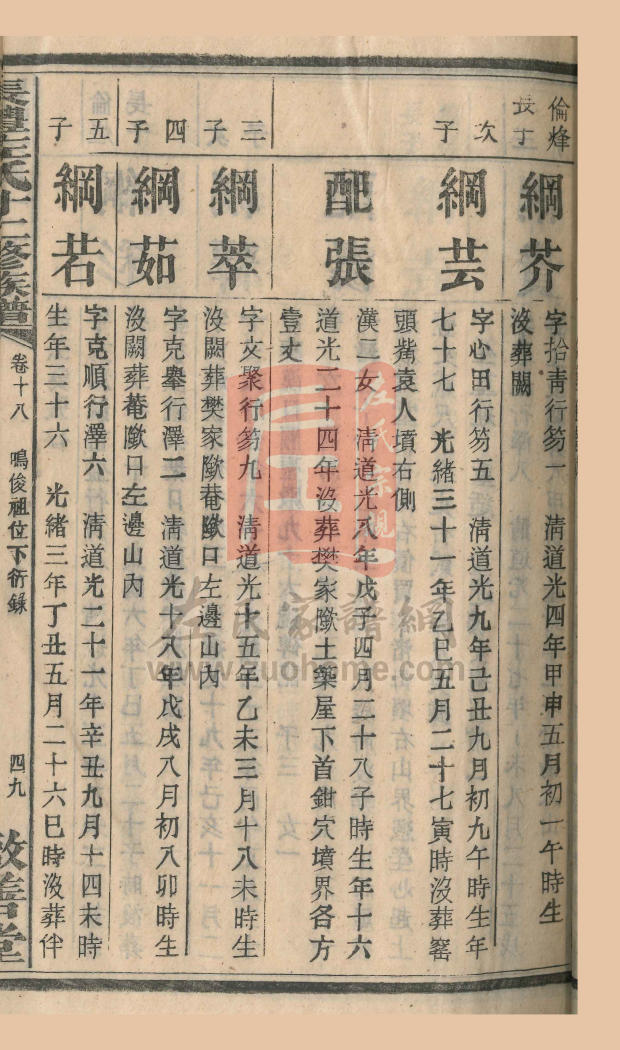 倫烽長子
綱芥
字拾青行芴一 清道光四年甲申五月初一午時生
沒葬闕
次子
綱芸
字心田行芴五 清道光九年己丑九月初九午時生年
七十七 光緒三十一年乙巳五月二十七寅時沒葬窰
頭觜袁人墳右側
配張
漢二女 清道光八年戊子四月二十八子時生年十六
道光二十四年沒葬樊家陂土築屋下首鉗穴墳界各方
壹丈
三子
綱萃
字文聚行芴九 清道光十五年乙未三月十八未時生
沒闕葬樊家陂菴陂口左邊山內
四子
綱茹
字克舉行澤二 清道光十八年戊戌八月初八卯時生
沒闕葬菴陂口左邊山內
五子
綱若
字克順行澤六 清道光二十一年辛丑九月十四未時
生年三十六 光緒三年丁丑五月二十六巳時沒葬伴
長豊左氏十二修族譜
卷十八 鳴俊祖位下衍錄
四九
敦善堂
左氏宗親
左氏家譜網
www.zuohome.com